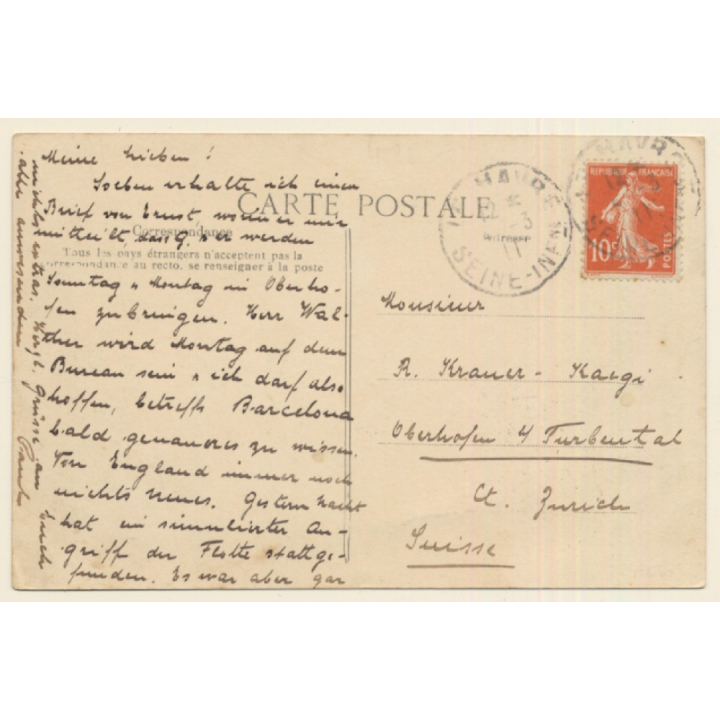 Meine Lieben!
Soeben erhalte ich einen
Brief von Ernst, worin er mir
mitteilt, dass
er werden
Sonntag & Montag in Oberho-
fen zubringen. Herr Wal-
ther wird Montag auf dem
Bureau sein & ich darf also
hoffen, betreffs Barcelona
bald genaueres zu wissen.
Von England immer noch
nichts neues. Gestern Nacht
hat ein simulierter An-
griff der Flotte stattge-
funden. Es war aber gar
nichts extras. Herzl. Grüsse an Euch
alle anwesenden
CARTE POSTALE
Correspondance
Adresse
Tous les pays étrangers n'acceptent pas la
correspondance au recto, se renseigner à la poste
LE HAVRE
11
SEINE-INFRE
REPUBLIQUE FRANÇAISE
10c
POSTES
Monsieur
R. Krauer-Kaegi
Oberhofen 4 Turbental
Ct. Zurich
Suisse